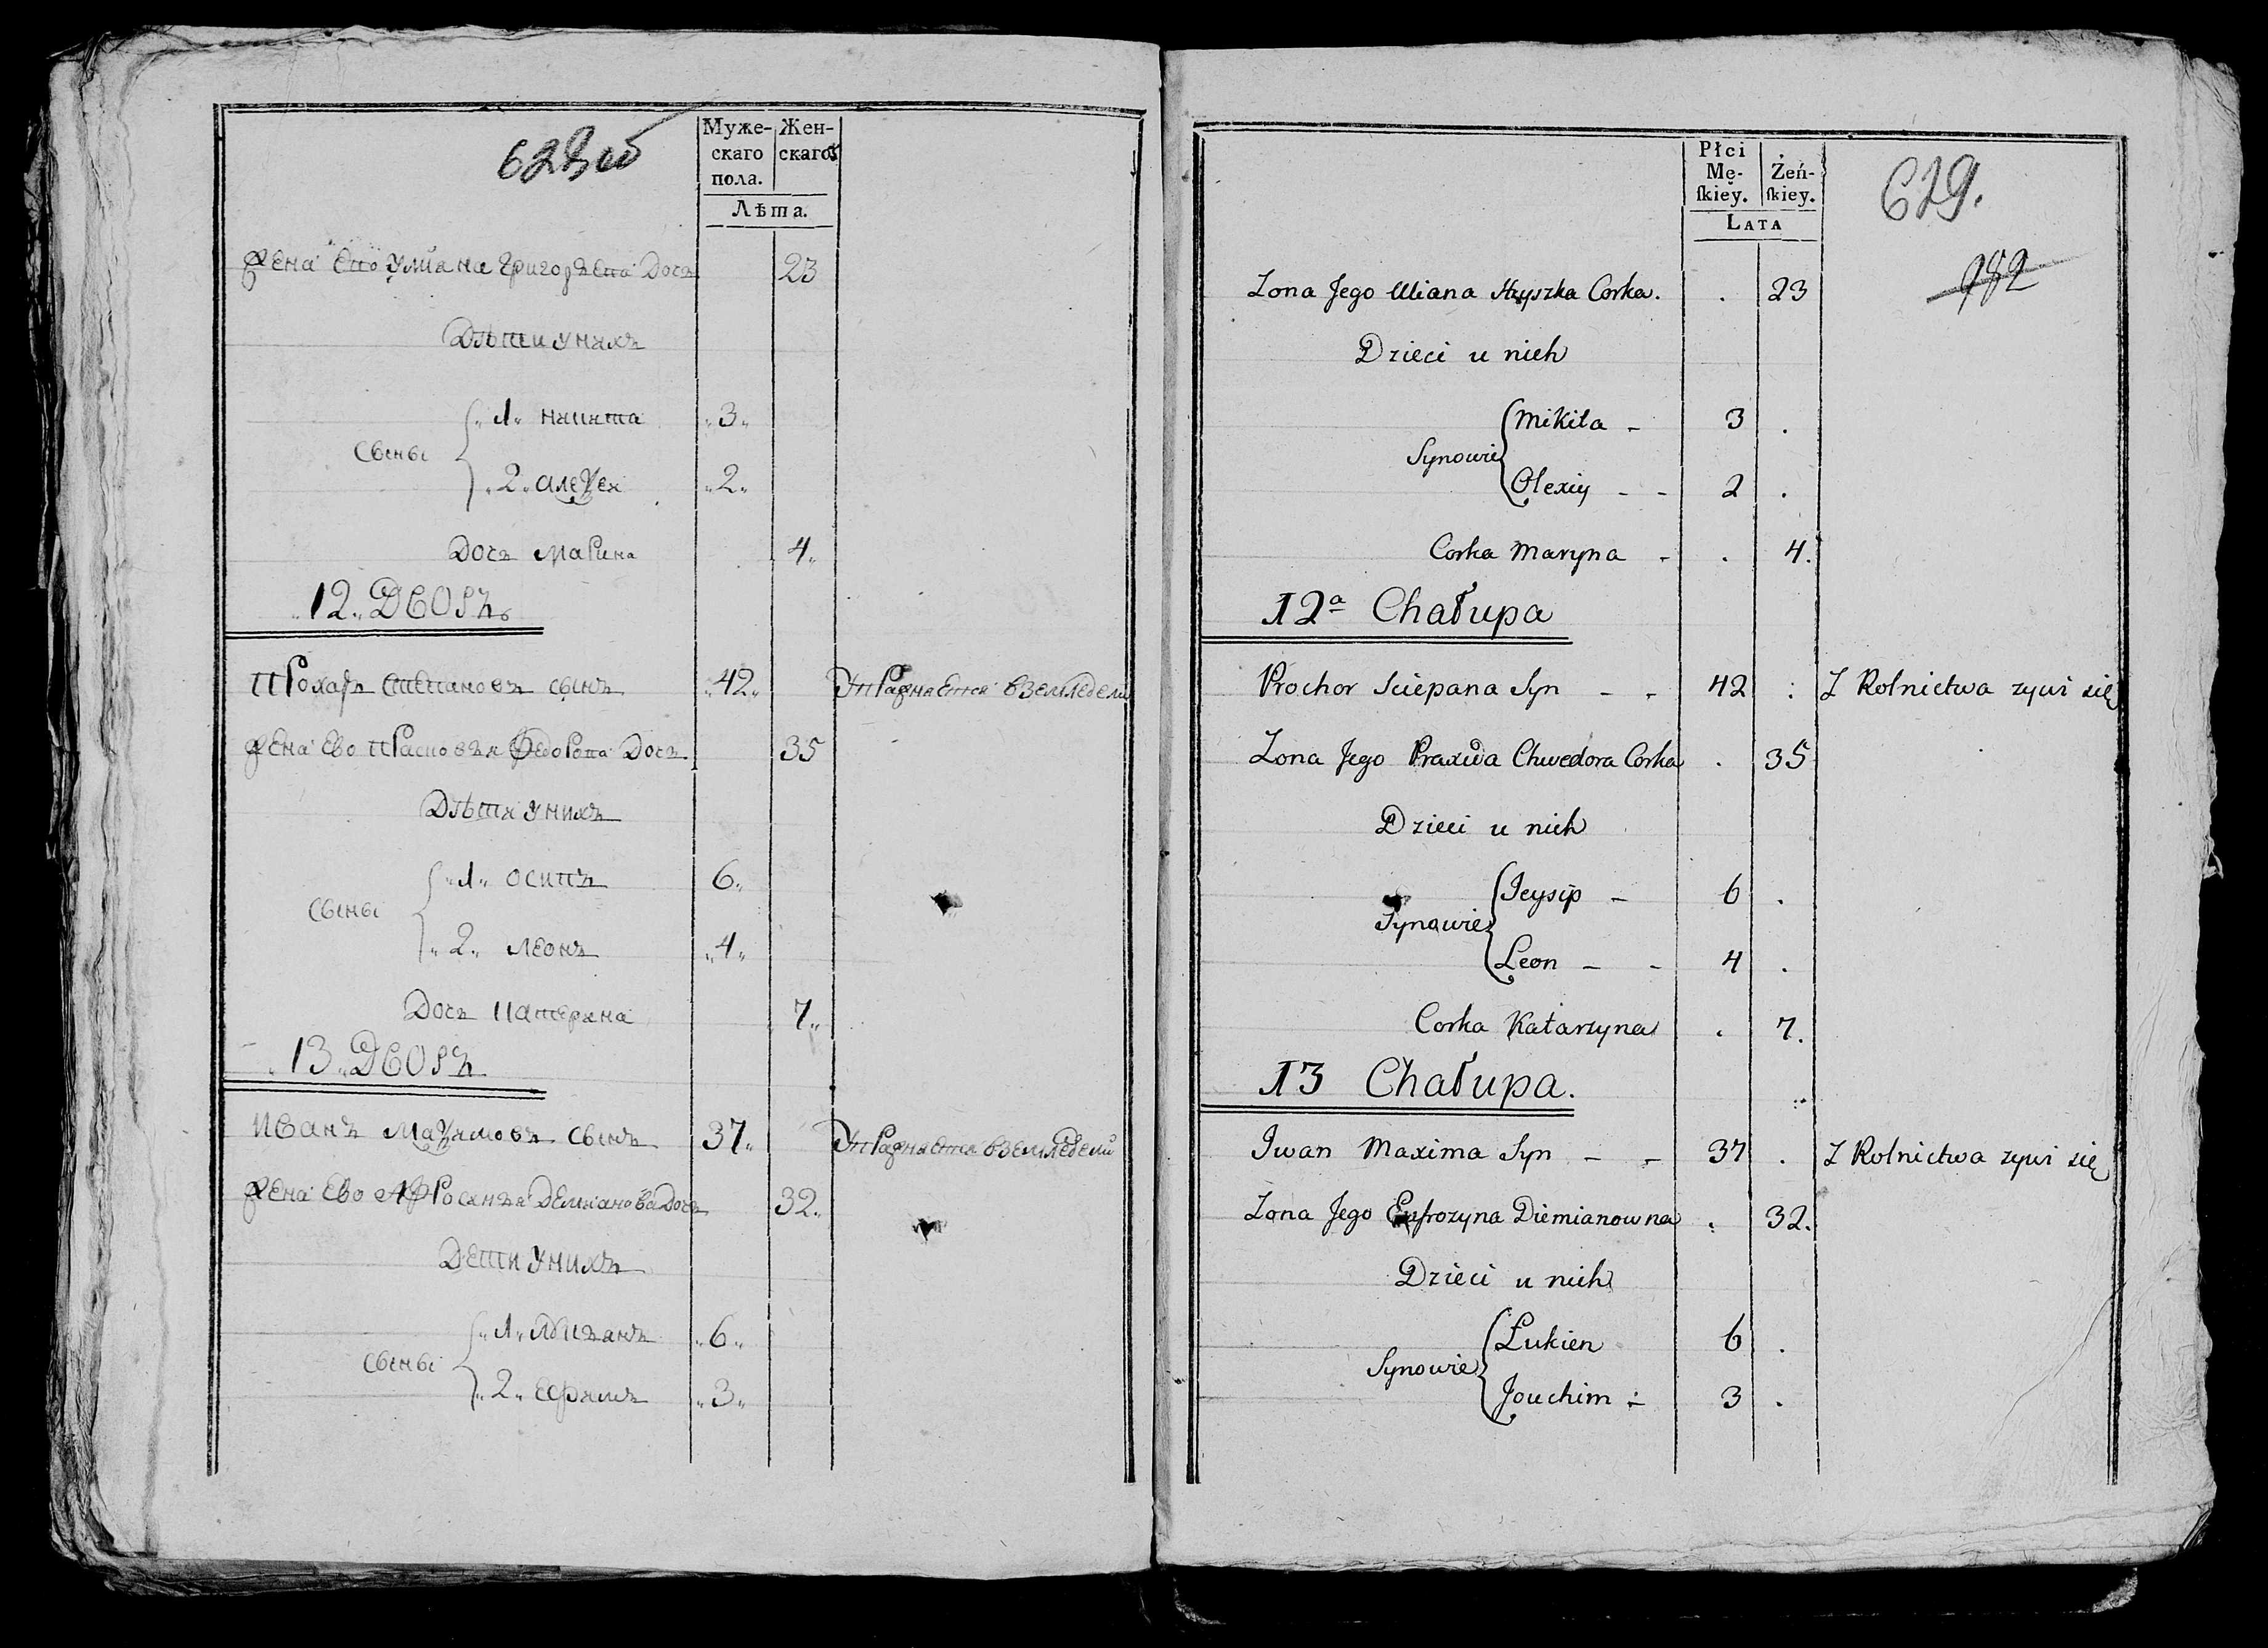 628 об
Муже- Жен-
скаго скаго
пола.
Лѣта.
жена ево улиана григорьева Дочь 23
Дѣти унихъ
Сыны
1 никита 3
2 алеѯеи 2
Дочь марина 4
12 Дворъ
Прохаръ Степановъ сынъ 42 Упражнается вземледели
жена ево прасковья Федорова Дочь 35
Дѣти унихъ
Сыны
1 осипъ 6
2 леонъ 4
Дочь катерина 7
13 Дворъ
Иванъ маѯимовъ сынъ 37 Упражнается вземледели
жена ево Афросинья Демианова Дочь 32
Дети унихъ
Сыны
1 6
2 3
Płci
Mę- Żeń-
ſkiey. ſkiey.
LATA
629.
982
Zona Jego Uliana Hryszka Corka. . 23
Dzieci u nich
Synowie
Mikita - 3 .
Olexiy - - 2 .
Corka Maryna - . 4.
12a Chałupa
Prochor Sciepana Syn - - 42 : Z Rolnictwa zywi się
Zona Jego Praxeda Chwedora Corka . 35
Dzieci u nich
Synowie
Jeysip - 6 .
Leon - - 4 .
Corka Katarzyna . 7.
13 Chałupa.
Iwan Maxima Syn - - 37 . Z Rolnictwa zywi się
Zona Jego Eufrozyna Diemianowna . 32.
Dzieci u nich
Synowie
Łukien 6 .
Jouchim - 3 .